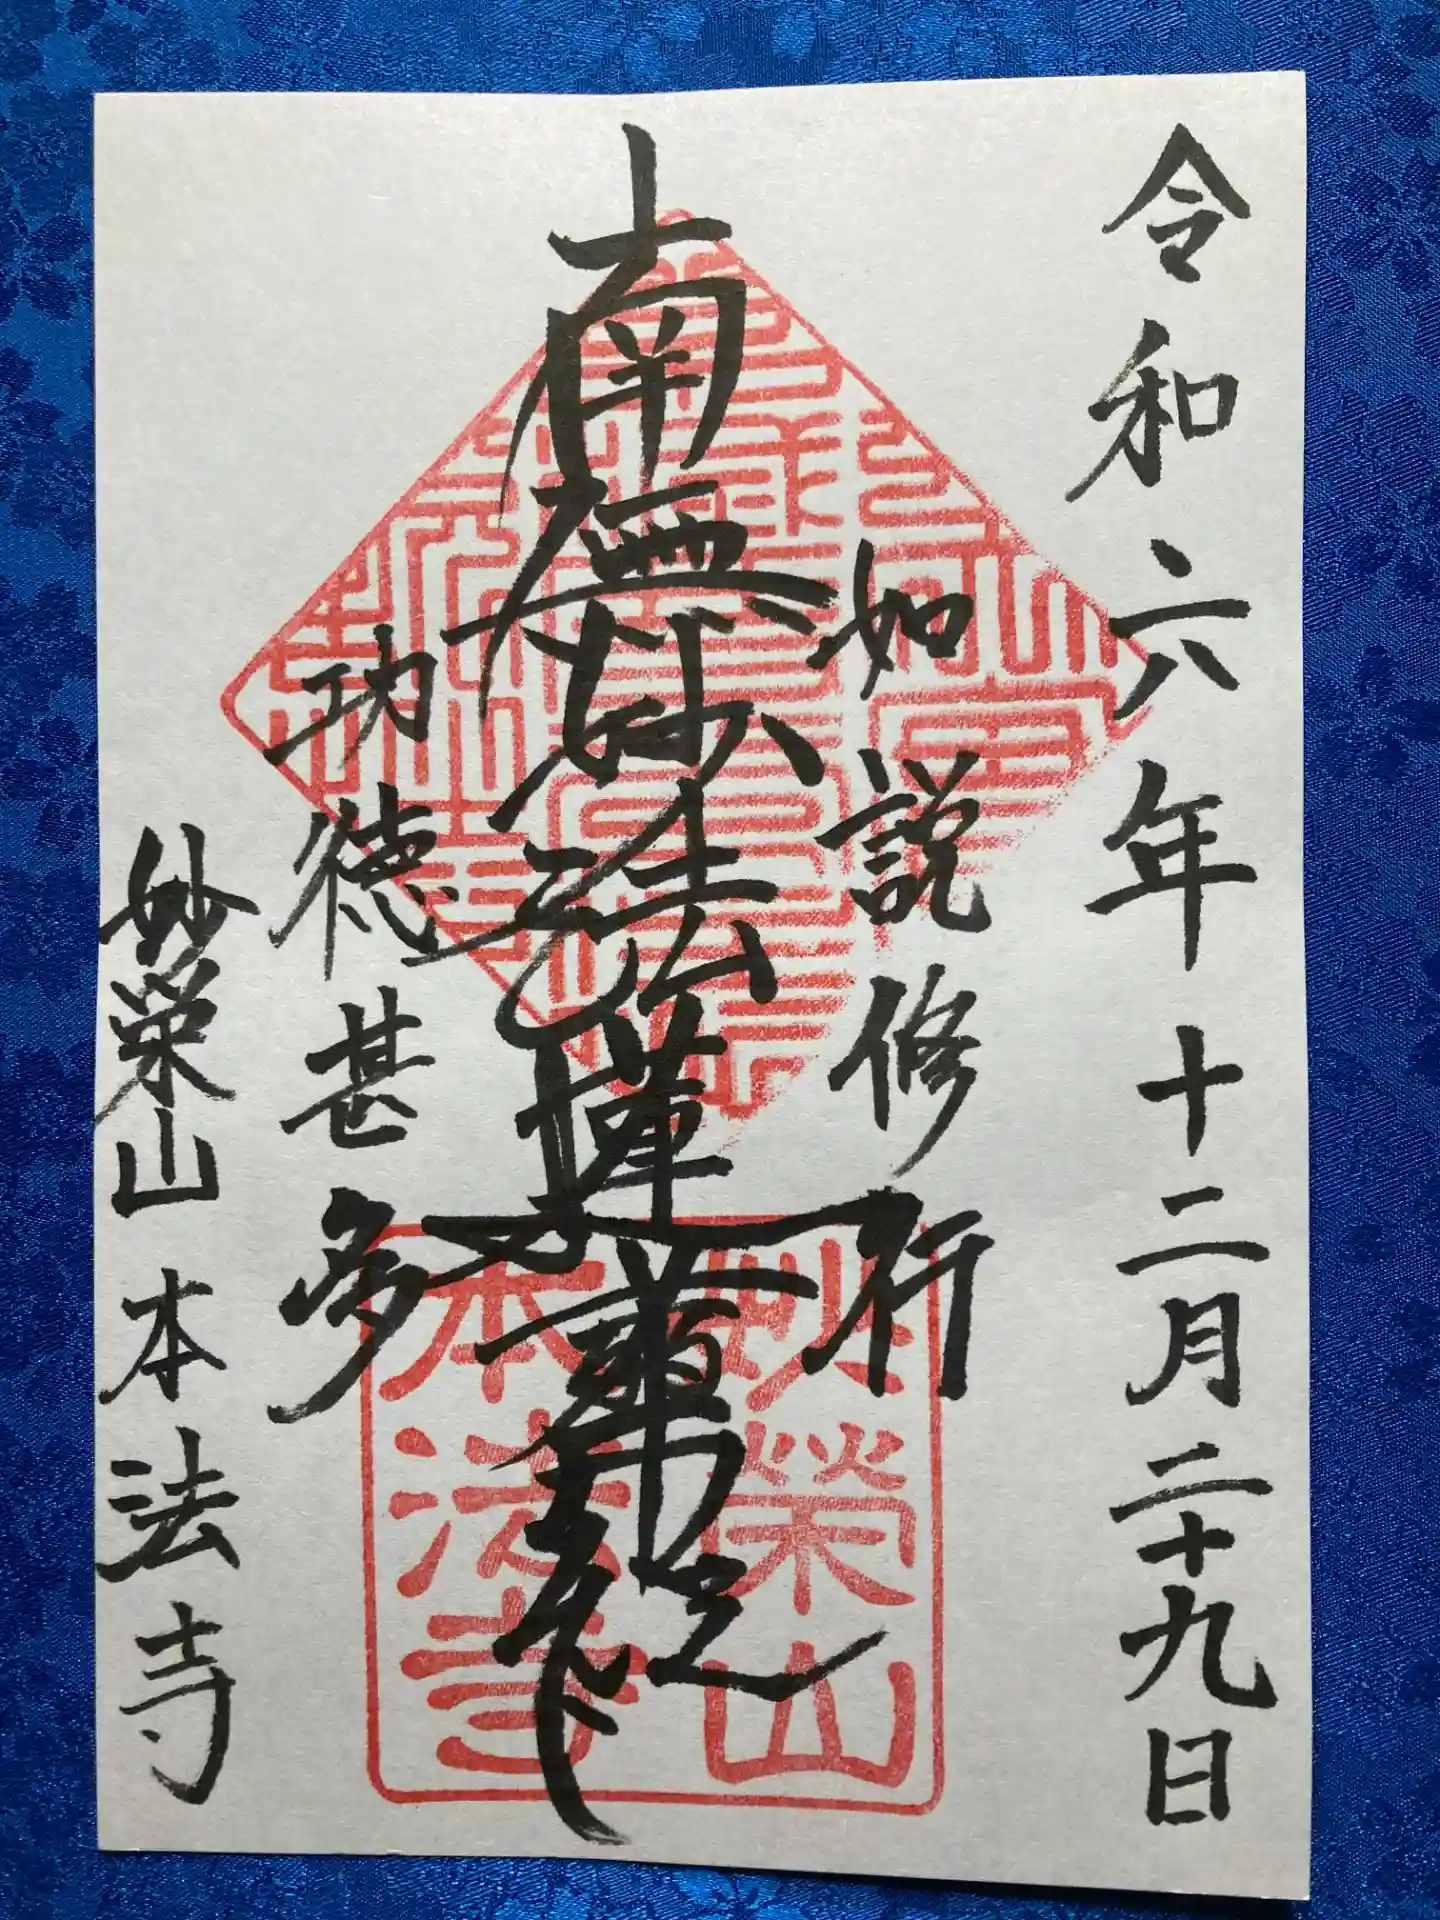 令和六年十二月二十九日
如説修行
南無妙法蓮華経
功徳甚多
妙栄山本法寺
妙榮山
本法寺